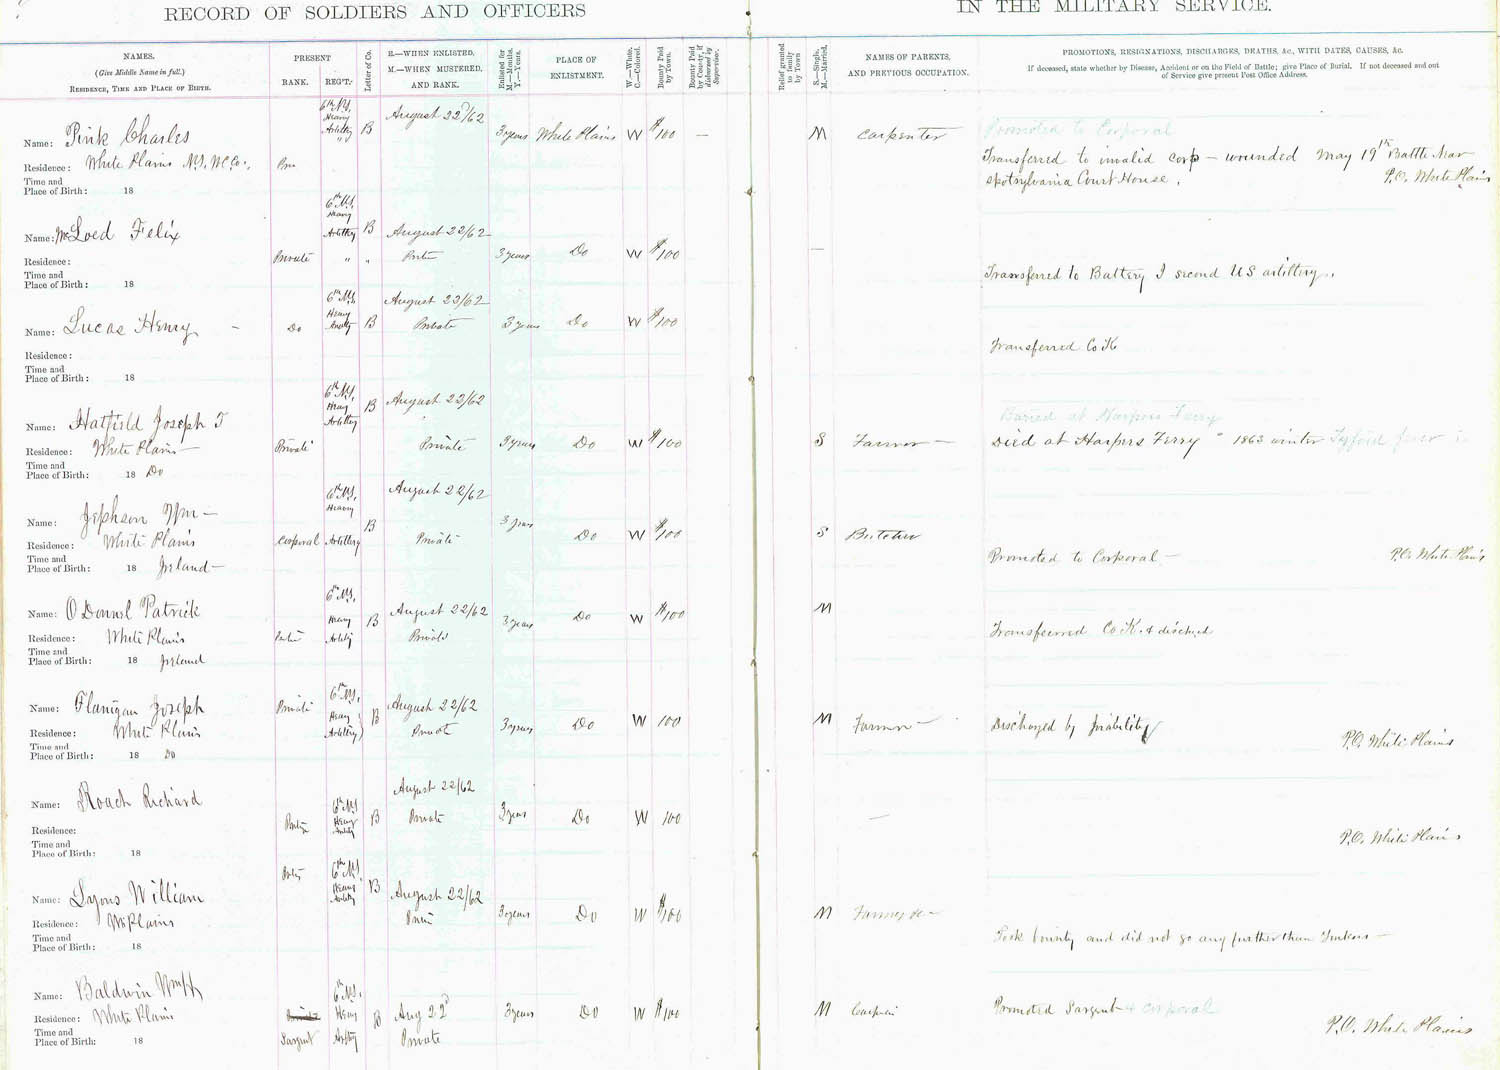 RECORD OF SOLDIERS AND OFFICERS IN THE MILITARY SERVICE.
NAMES.
(Give Middle Name in full.)
RESIDENCE, TIME AND PLACE OF BIRTH.
PRESENT
RANK. REG'T.
Letter of Co.
E.—WHEN ENLISTED.
M.—WHEN MUSTERED.
AND RANK.
Enlisted for
M.—Months.
Y.—Years.
PLACE OF
ENLISTMENT.
W.—White.
C.—Colored.
Bounty Paid
by Town.
Bounty Paid
by County, if
disbursed by
Supervisor.
Relief granted
to family
by Town
S.—Single.
M.—Married.
NAMES OF PARENTS,
AND PREVIOUS OCCUPATION.
PROMOTIONS, RESIGNATIONS, DISCHARGES, DEATHS, &c., WITH DATES, CAUSES, &c.
If deceased, state whether by Disease, Accident or on the Field of Battle; give Place of Burial. If not deceased and out
of Service give present Post Office Address.
6th N.Y.
Heavy
Artillery B August 22/62
Name: Pink Charles 3 years White Plains W $100 — M Carpenter Promoted to Corporal
Residence: White Plains N.Y. W.Co. Transferred to invalid corp — wounded May 19th Battle Near
Time and
Place of Birth: 18 Spotsylvania Court House. P.O. White Plains
6th N.Y.
Heavy
Artillery B August 22/62
Name: McLoed Felix
Residence: Private " " 3 years Do W $100 —
Time and
Place of Birth: 18 Transferred to Battery I second US artillery.
6th N.Y.
Heavy August 22/62
Name: Lucas Henry — Do B Private 3 years Do W $100
Residence: Transferred Co K
Time and
Place of Birth: 18
6th N.Y.
Heavy
Artillery B August 22/62
Buried at Harpers Ferry
Name: Hatfield Joseph T
Residence: White Plains Private Private 3 years Do W $100 S Farmer — Died at Harpers Ferry 1863 winter Tyfoid fever
Time and
Place of Birth: 18 Do
6th N.Y.
Heavy August 22/62
Name: Jephson Wm — B 3 years
Residence: White Plains Corporal Artillery Private Do W $100 S Butcher
Time and
Place of Birth: 18 Ireland — Promoted to Corporal — P.O. White Plains
6th N.Y.
Name: O Donnel Patrick Heavy B August 22/62 3 years Do W $100 M
Residence: White Plains Private Transferred Co K.
Time and
Place of Birth: 18 Ireland
6th N.Y.
Name: Flanigan Joseph Private Heavy B August 22/62
Residence: White Plains Artillery Private 3 years Do W 100 M Farmer — Discharged by
Time and
Place of Birth: 18 Do P.O. White Plains
August 22/62
Name: Roach Richard 6th N.Y.
Heavy B Private 3 years Do W 100 —
Residence:
Time and
Place of Birth: 18 P.O. White Plains
6th N.Y. B August 22/62
Name: Lyons William
Residence: W Plains 3 years Do W $100 M Farmer
Time and
Place of Birth: 18 Took bounty and did not go any further than Yonkers —
6th N.Y.
Name: Baldwin
Residence: White Plains Heavy B Aug 22d 3 years Do W $100 M Promoted Sargent & corporal
Time and
Place of Birth: 18 Sargent Private P.O. White Plains